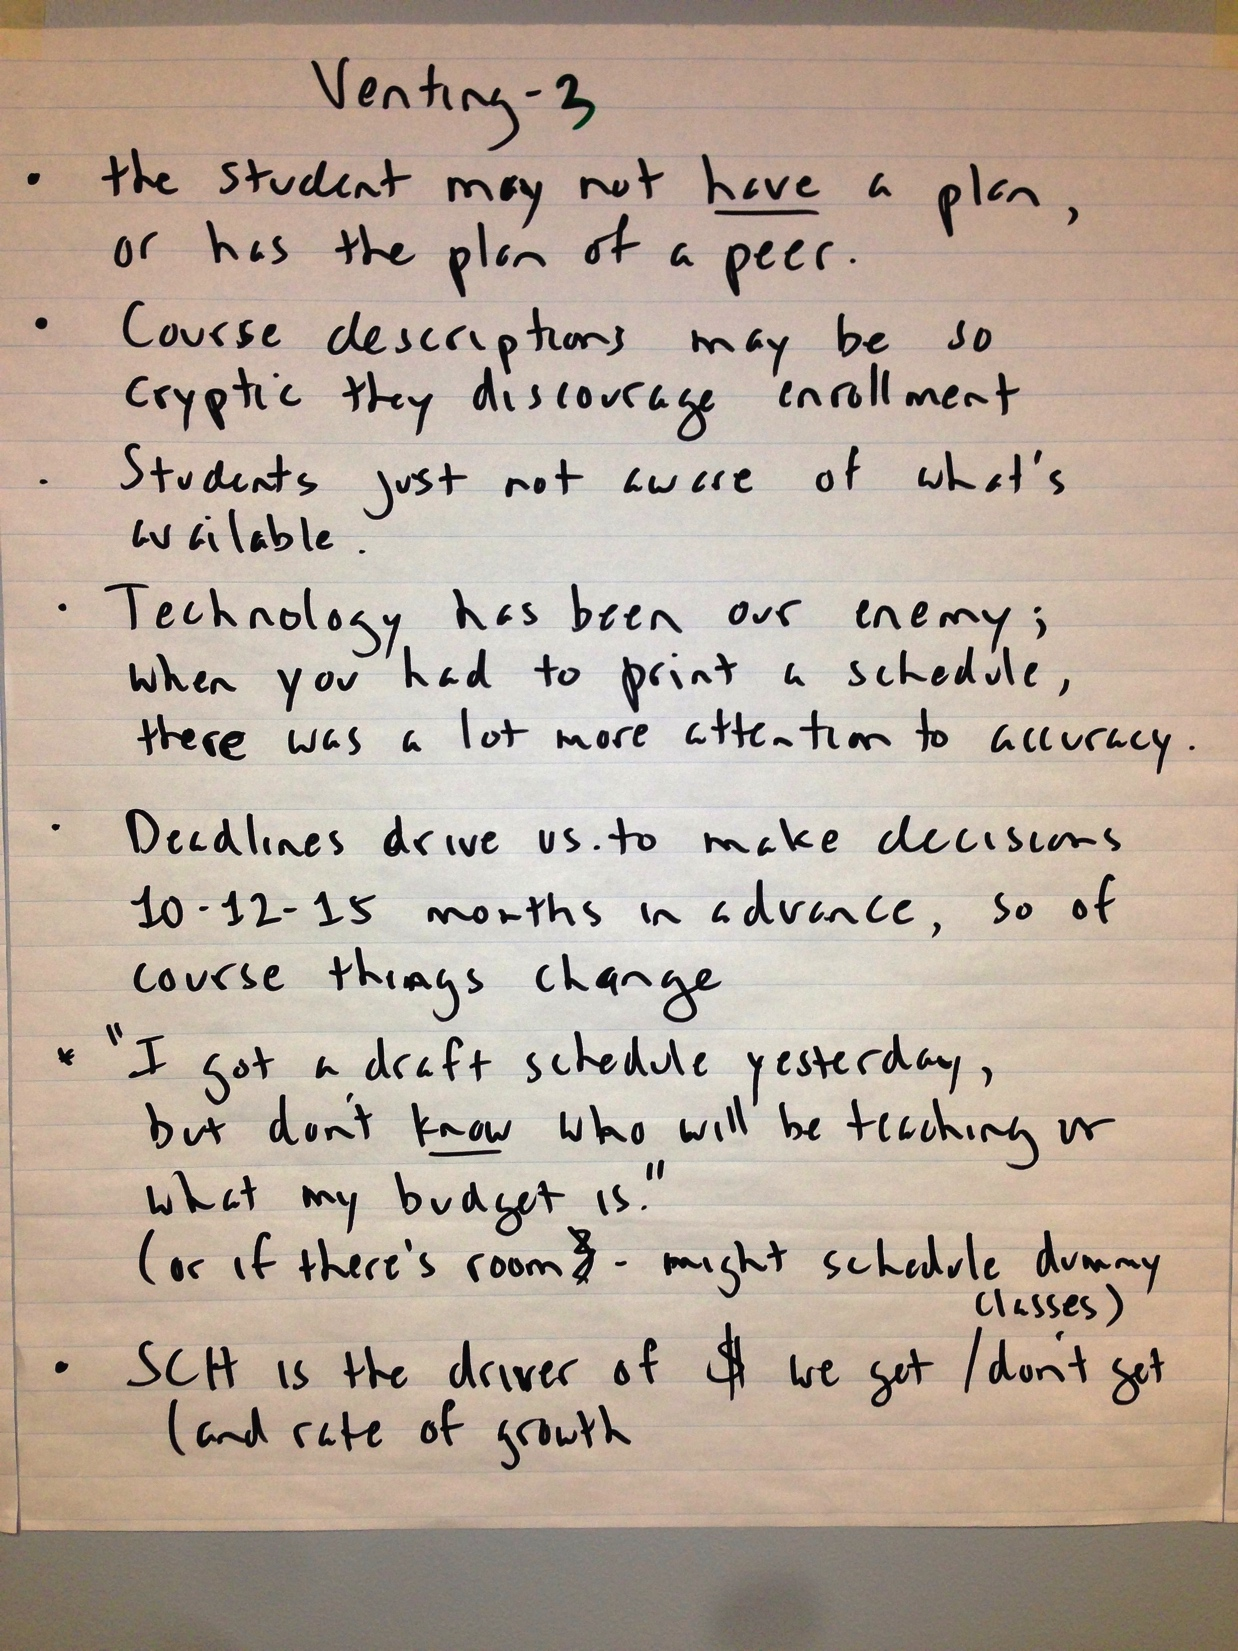 Venting-3
• the student may not have a plan,
or has the plan of a peer.
• Course descriptions may be so
cryptic they discourage enrollment
• Students just not aware of what's
available.
• Technology has been our enemy;
when you had to print a schedule,
there was a lot more attention to accuracy.
• Deadlines drive us to make decisions
10-12-15 months in advance, so of
course things change
* "I got a draft schedule yesterday,
but don't know who will be teaching or
what my budget is."
(or if there's room - might schedule dummy
classes)
• SCH is the driver of $ we get / don't get
(and rate of growth